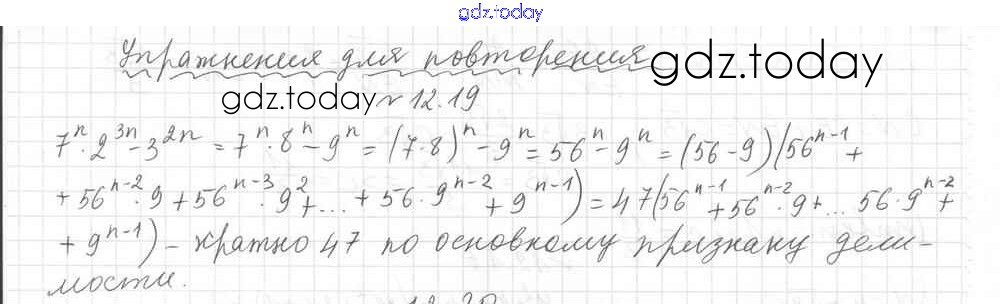 gdz.today
Упражнения для повторения
gdz.today
gdz.today № 12.19
7ⁿ · 2³ⁿ - 3²ⁿ = 7ⁿ · 8ⁿ - 9ⁿ = (7·8)ⁿ - 9ⁿ = 56ⁿ - 9ⁿ = (56-9)(56ⁿ⁻¹ +
+ 56ⁿ⁻² · 9 + 56ⁿ⁻³ · 9² + ... + 56 · 9ⁿ⁻² + 9ⁿ⁻¹) = 47(56ⁿ⁻¹ + 56ⁿ⁻² · 9 + ... 56 · 9ⁿ⁻² +
+ 9ⁿ⁻¹) - кратно 47 по основному признаку дели-
мости.